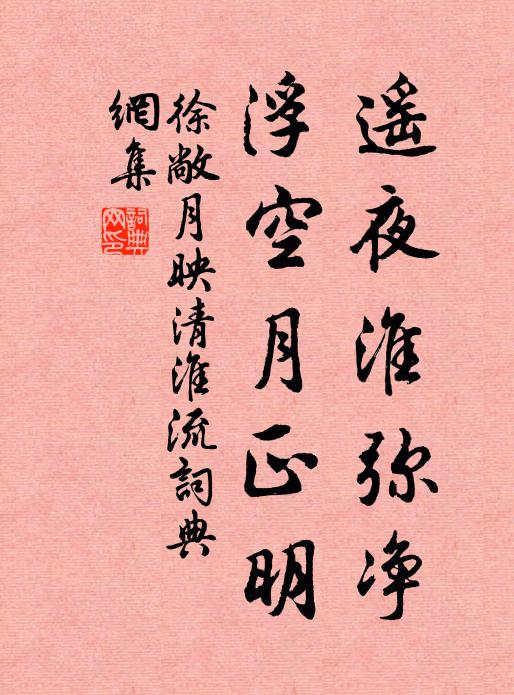 遥夜淮弥净
浮空月正明
徐敞月映清淮流詞典
網集
詞典網印